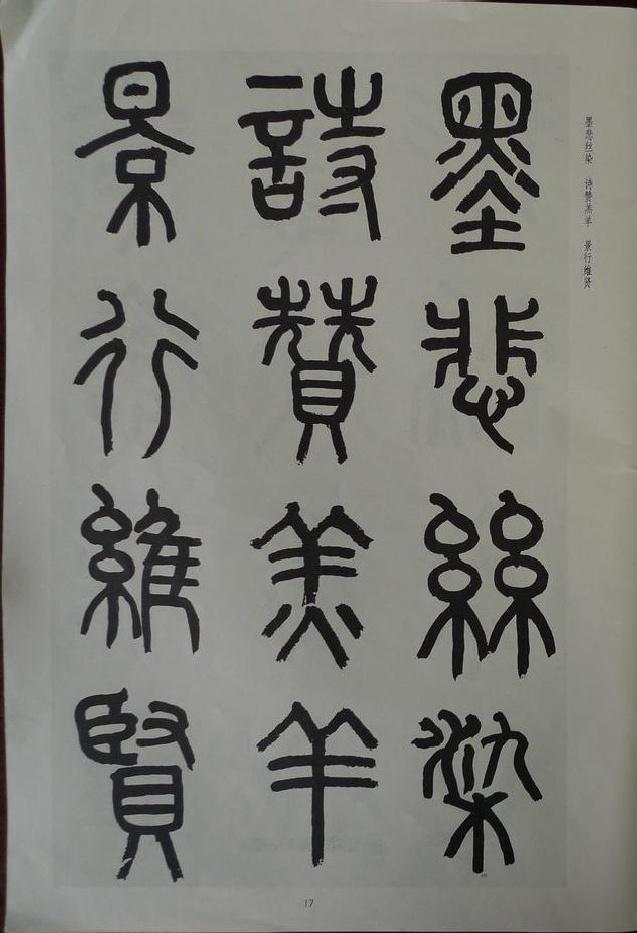 墨悲絲染
詩贊羔羊
景行維賢
墨悲丝染 诗赞羔羊 景行维贤
17